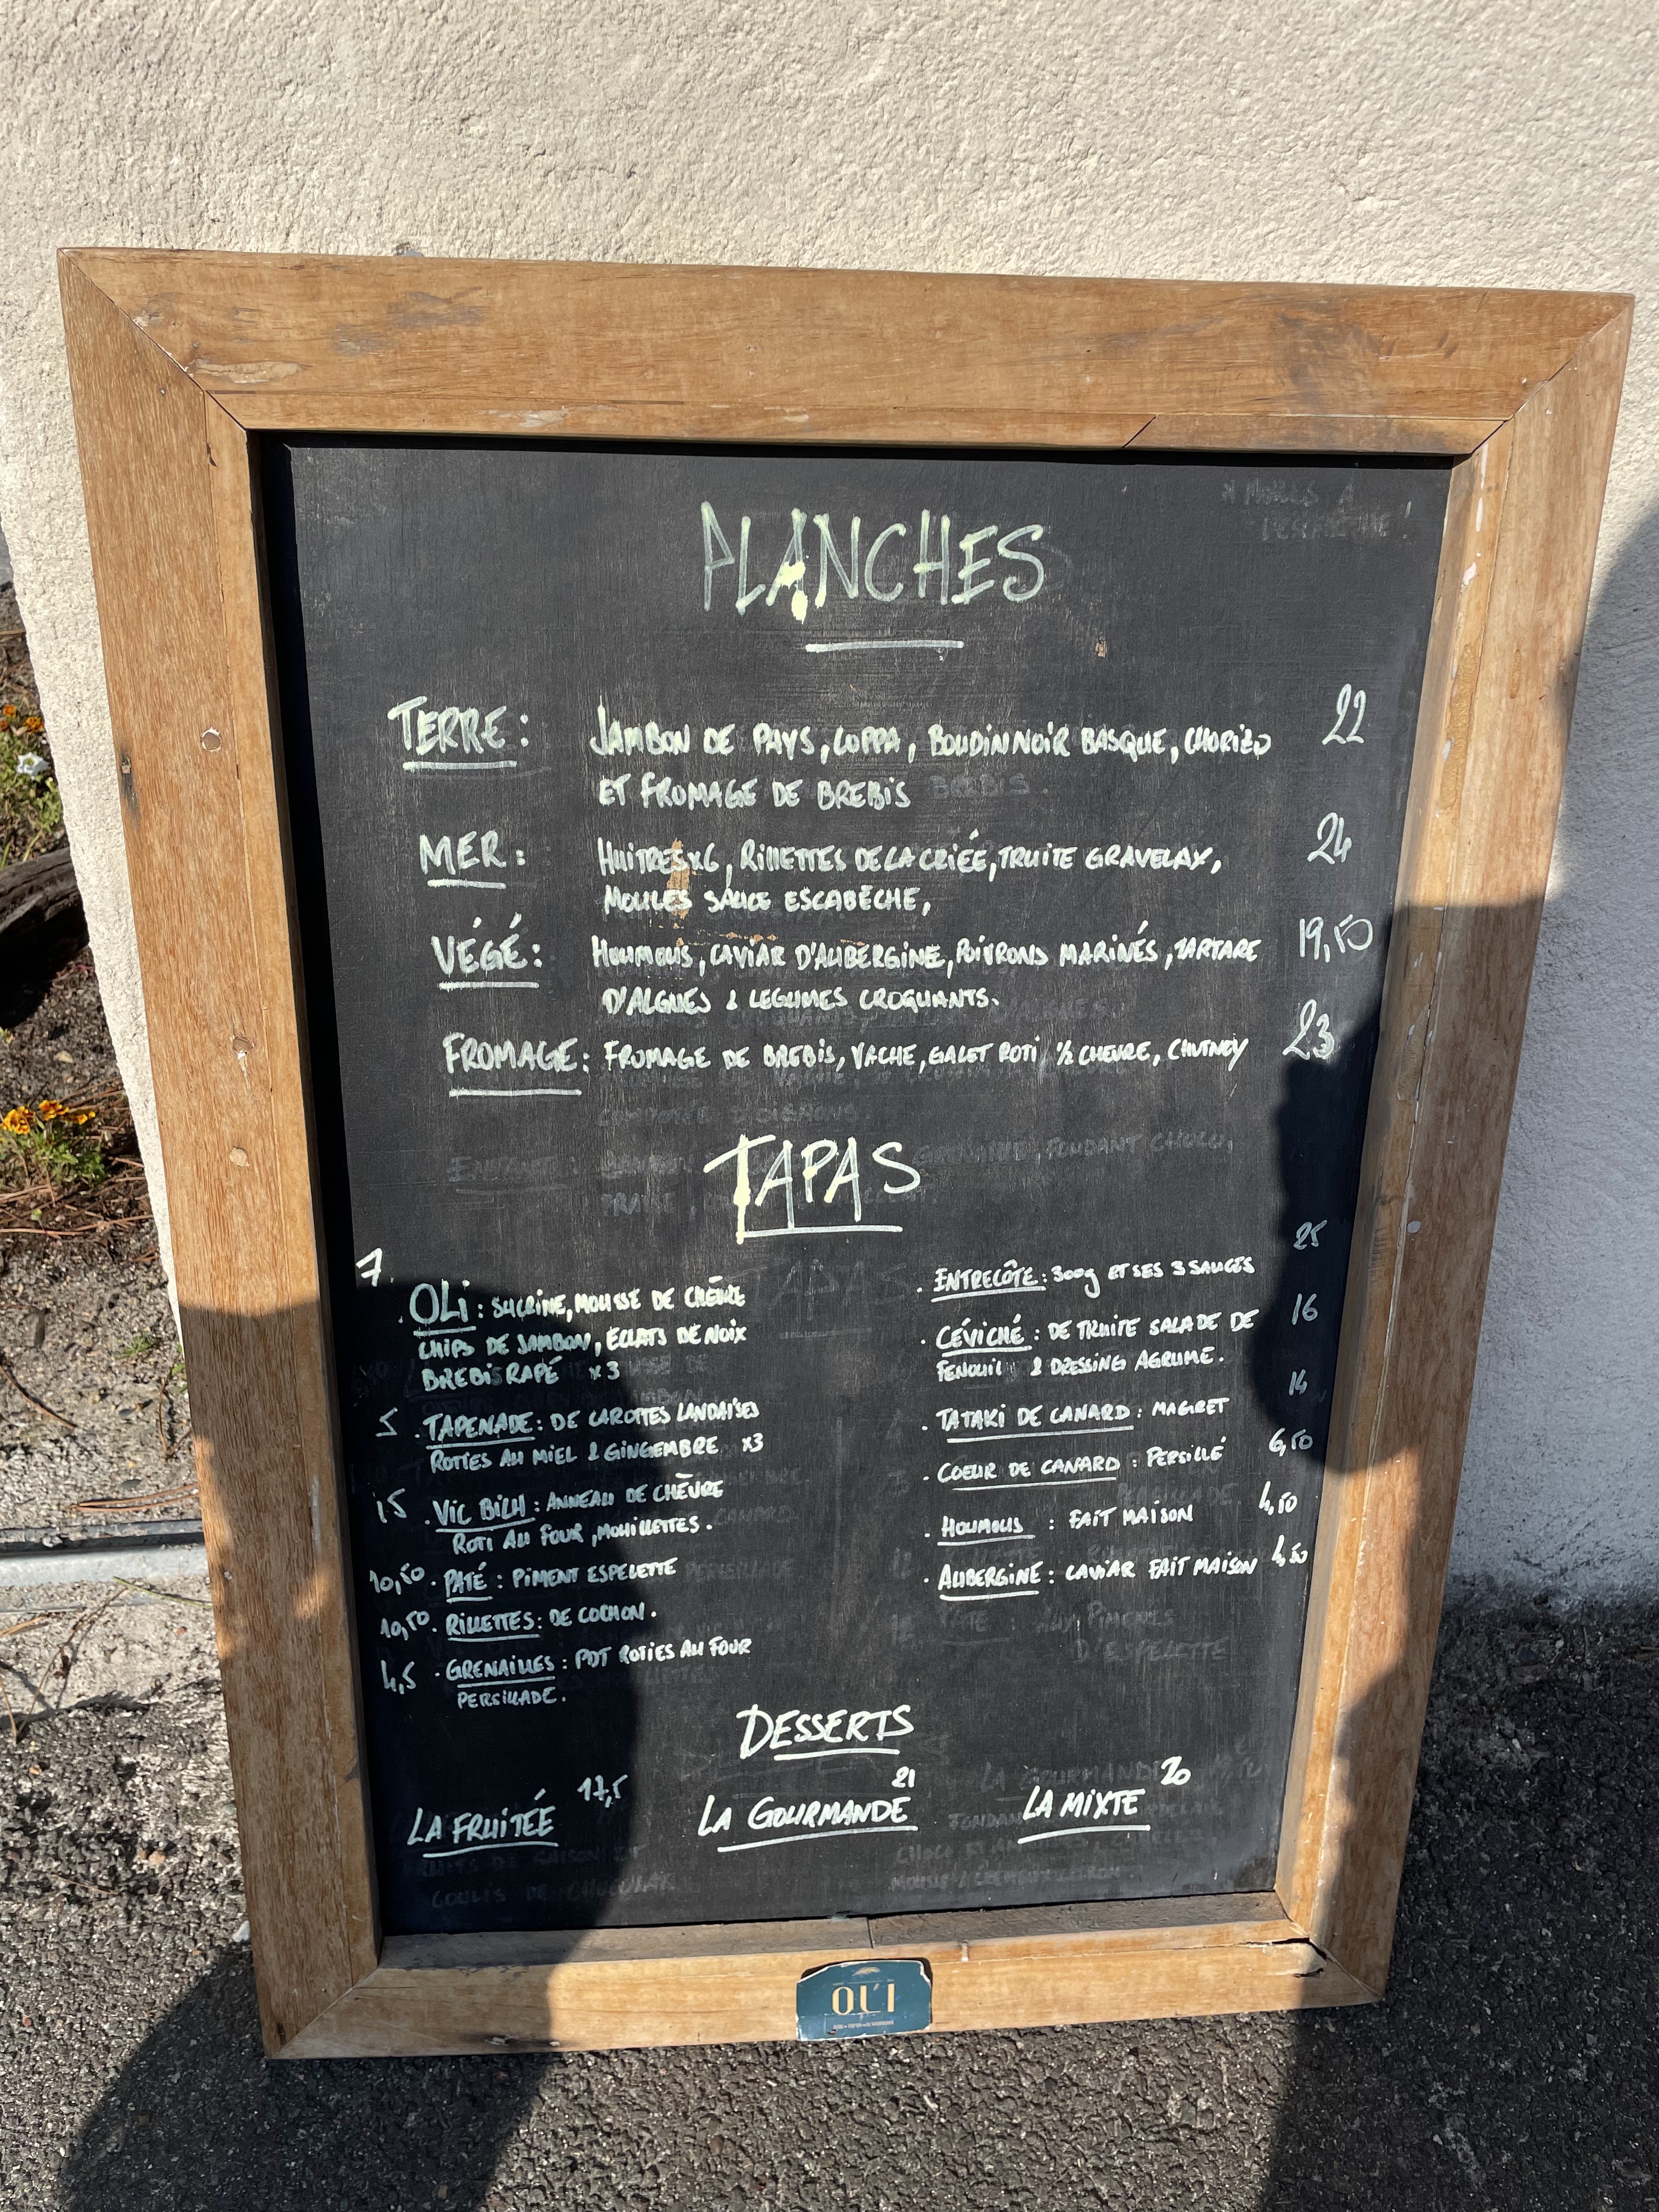 PLANCHES
TERRE: JAMBON DE PAYS, COPPA, BOUDIN NOIR BASQUE, CHORIZO 22
ET FROMAGE DE BREBIS
MER: HUITRES X6, RILLETTES DE LA CRIÉE, TRUITE GRAVELAX, 24
MOULES SAUCE ESCABÈCHE,
VÉGÉ: HOUMOUS, CAVIAR D'AUBERGINE, POIVRONS MARINÉS, TARTARE 19,50
D'ALGUES & LEGUMES CROQUANTS.
FROMAGE: FROMAGE DE BREBIS, VACHE, GALET ROTI 1/2 CHEVRE, CHUTNEY 23
TAPAS
7 . OLI: SUCRINE, MOUSSE DE CHÈVRE
CHIPS DE JAMBON, ECLATS DE NOIX
BREBIS RAPÉ x3
5 . TAPENADE: DE CAROTTES LANDAISES
ROTIES AU MIEL & GINGEMBRE x3
15 . VIC BILH: ANNEAU DE CHÈVRE
ROTI AU FOUR, MOUILLETTES.
10,50 . PATÉ: PIMENT ESPELETTE
10,50 . RILLETTES: DE COCHON.
4,5 . GRENAILLES: PDT ROTIES AU FOUR
PERSILLADE.
. ENTRECÔTE: 300g ET SES 3 SAUCES 25
. CÉVICHÉ: DE TRUITE SALADE DE 16
FENOUIL & DRESSING AGRUME.
. TATAKI DE CANARD: MAGRET 14
. COEUR DE CANARD: PERSILLÉ 6,50
. HOUMOUS: FAIT MAISON 4,50
. AUBERGINE: CAVIAR FAIT MAISON 4,50
DESSERTS
LA FRUITÉE 17,5
LA GOURMANDE 21
LA MIXTE 20
OL'I